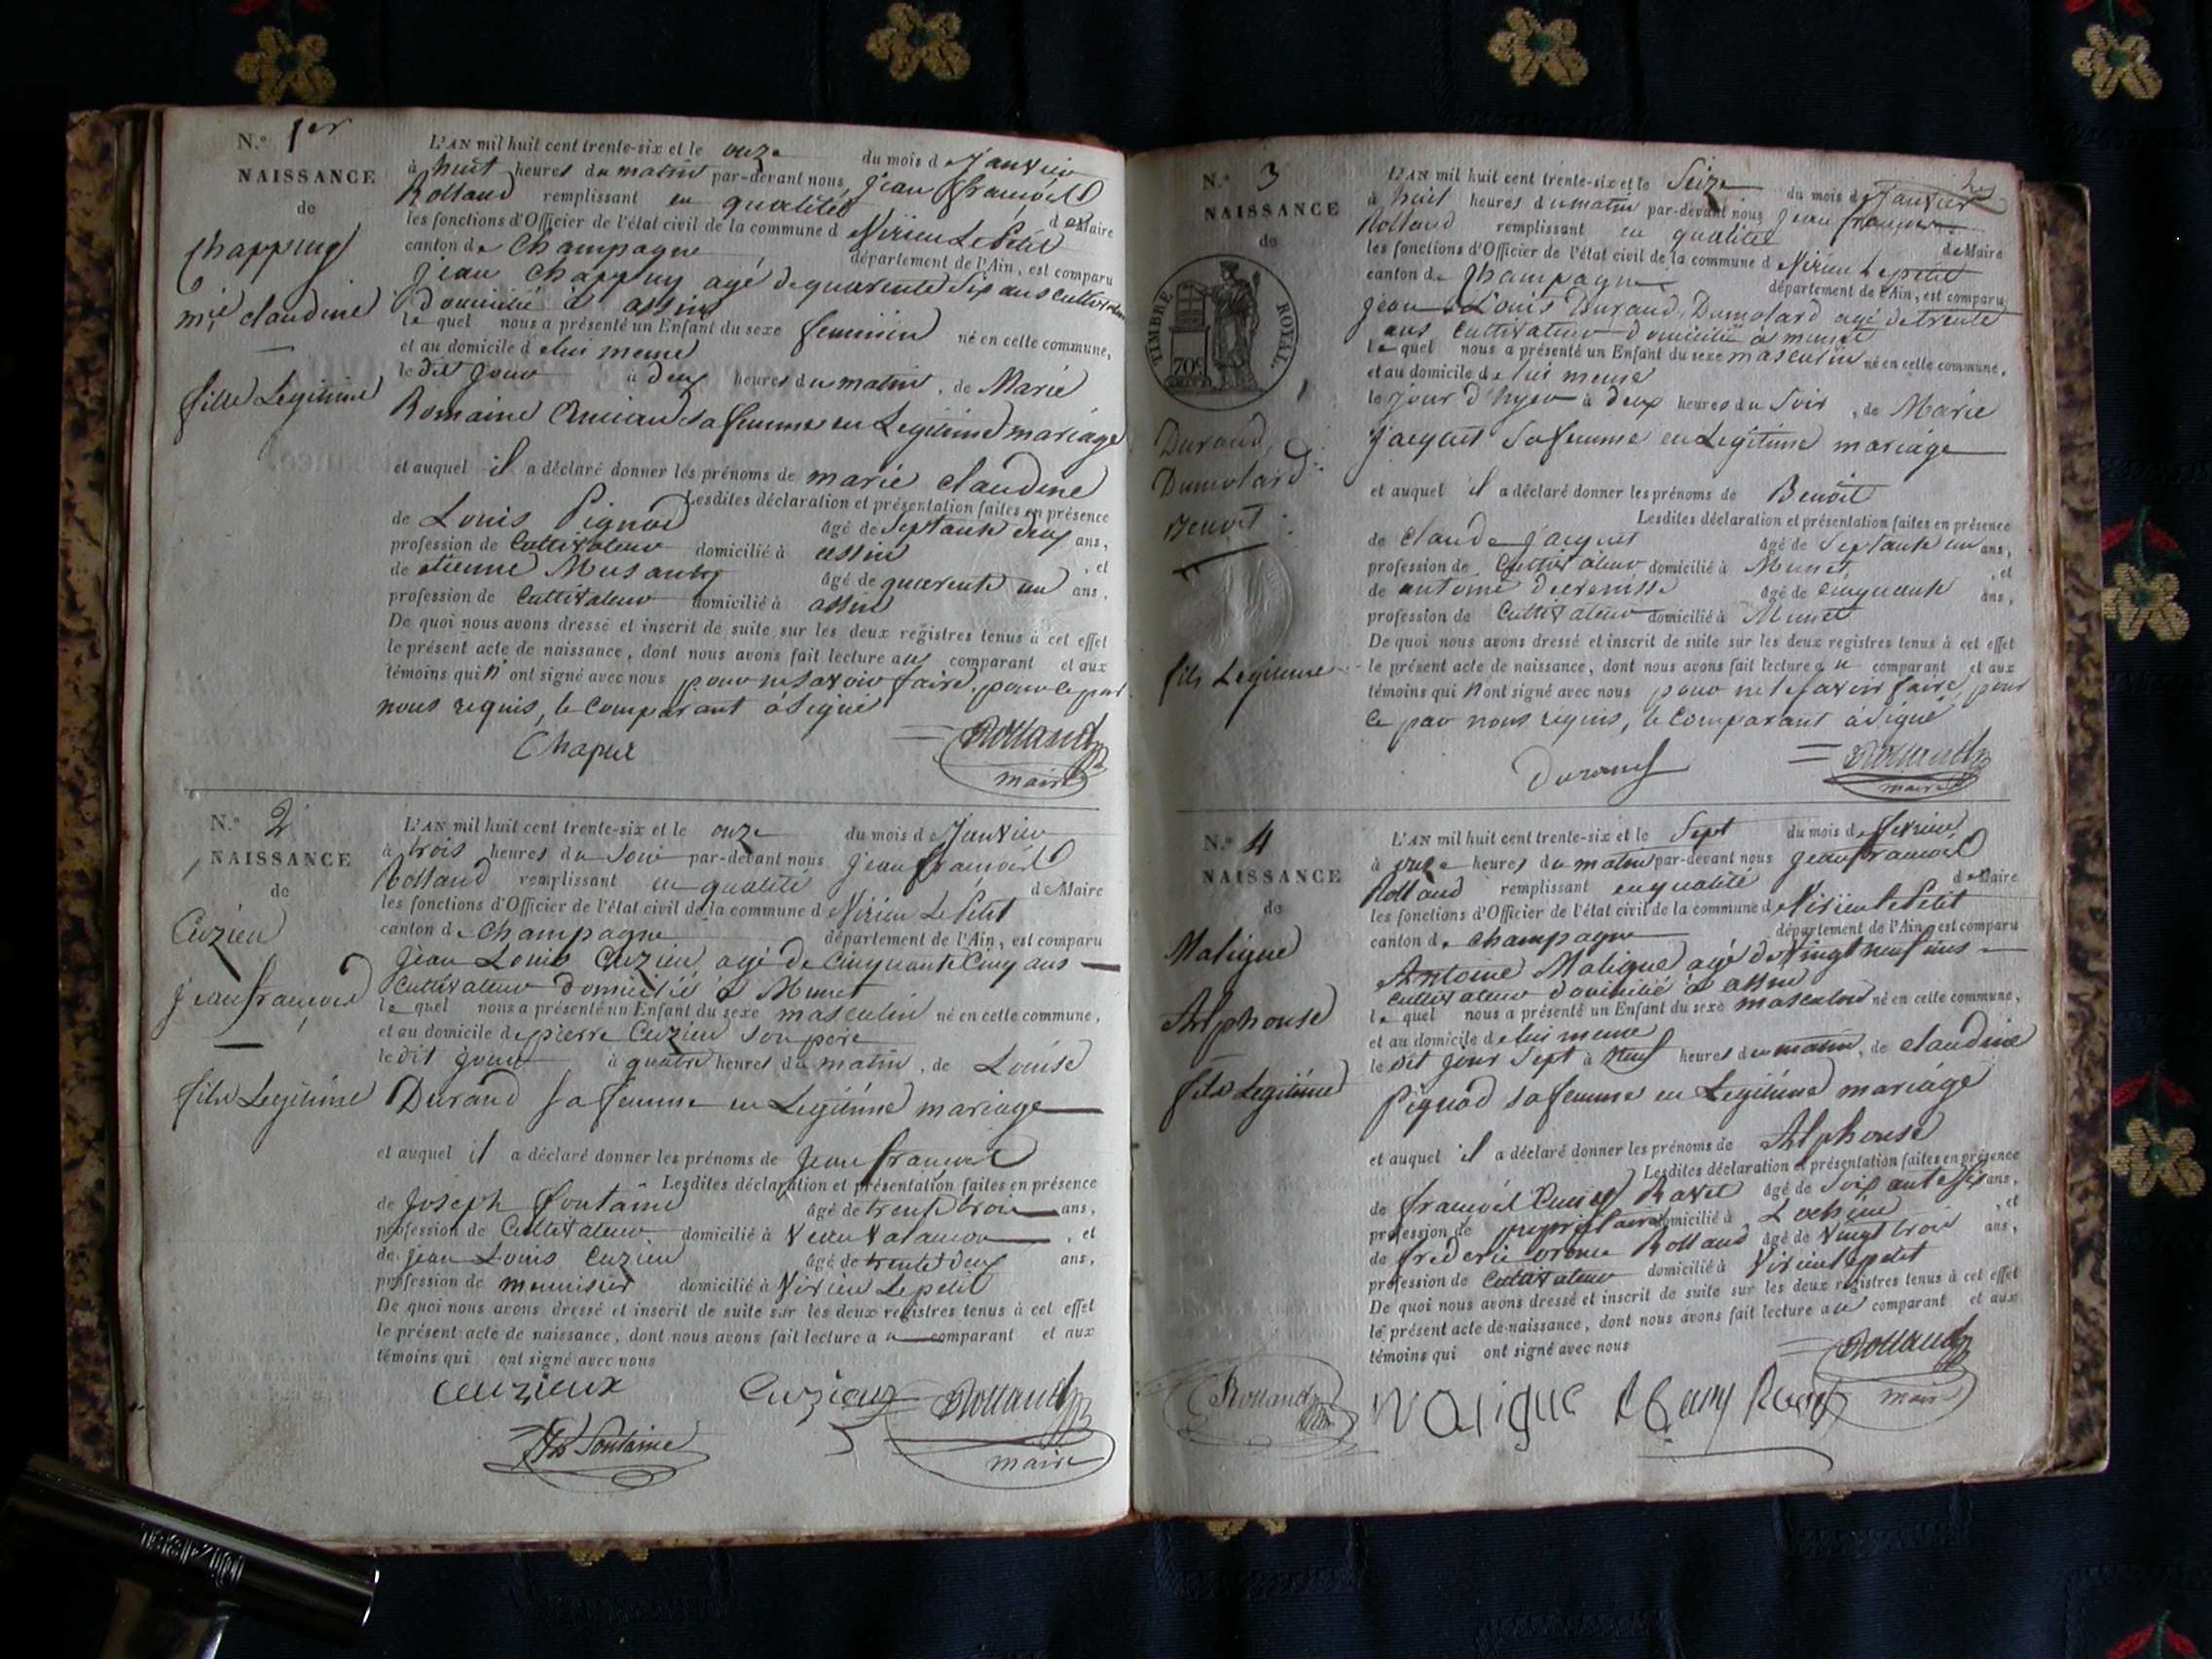 N.° 1er
NAISSANCE
de
Chappuy
mie claudine
fille Legitime
L'AN mil huit cent trente-six et le onze du mois de Janvier
à huit heures du matin par-devant nous, Jean françois
Rolland remplissant en qualité de Maire
les fonctions d'Officier de l'état civil de la commune d Virieu Le Petit
canton de Champagne, département de l'Ain, est comparu
Jean Chappuy agé de quarente six ans cultivateur
domicilié à assin
lequel nous a présenté un Enfant du sexe feminin né en cette commune,
et au domicile de lui meme
le dit jour à deux heures du matin, de Marie
Romaine sa femme en Legitime mariage
et auquel il a déclaré donner les prénoms de marie claudine
Lesdites déclaration et présentation faites en présence
de Louis Pignod âgé de Septante deux ans,
profession de Cultivateur domicilié à assin, et
de etienne âgé de quarente un ans,
profession de Cultivateur domicilié à assin
De quoi nous avons dressé et inscrit de suite sur les deux registres tenus à cet effet
le présent acte de naissance, dont nous avons fait lecture aux comparant et aux
témoins qui n'ont signé avec nous pour ne savoir faire, pour ce par
nous requis, le Comparant a signé
Chapui Rolland
maire
N.° 2
NAISSANCE
de
Cuzieu
jean françois
fils Legitime
L'AN mil huit cent trente-six et le onze du mois de Janvier
à trois heures du soir par-devant nous Jean françois
Rolland remplissant en qualité de Maire
les fonctions d'Officier de l'état civil de la commune d Virieu Le Petit
canton de Champagne département de l'Ain, est comparu
Jean Louis Cuzieu agé de Cinquante Cinq ans
Cultivateur domicilié à Munet
lequel nous a présenté un Enfant du sexe masculin né en cette commune,
et au domicile de pierre Cuzieu son pere
le dit jour à quatre heures du matin, de Louise
Durand sa femme en Legitime mariage
et auquel il a déclaré donner les prénoms de Jean françois
Lesdites déclaration et présentation faites en présence
de Joseph fontaine âgé de trente trois ans,
profession de Cultivateur domicilié à, et
de Jean Louis Cuzieu âgé de trente deux ans,
profession de menuisier domicilié à Virieu Le petit
De quoi nous avons dressé et inscrit de suite sur les deux registres tenus à cet effet
le présent acte de naissance, dont nous avons fait lecture au comparant et aux
témoins qui ont signé avec nous
cuzieux Cuzieux Rolland
Fontaine maire
N.° 3
NAISSANCE
de
TIMBRE ROYAL.
70c
Durand
Dumolard
Benoit
fils Legitime
L'AN mil huit cent trente-six et le Seize du mois de Janvier
à huit heures du matin par-devant nous Jean françois
Rolland remplissant en qualité de Maire
les fonctions d'Officier de l'état civil de la commune d Virieu Le petit
canton de Champagne département de l'Ain, est comparu
Jean Louis Durand Dumolard agé de trente
ans Cultivateur domicilié à munet
lequel nous a présenté un Enfant du sexe masculin né en cette commune,
et au domicile de lui meme
le jour d'hyer à deux heures du Soir, de Marie
Jacquet sa femme en Legitime mariage
et auquel il a déclaré donner les prénoms de Benoit
Lesdites déclaration et présentation faites en présence
de claude jacquet âgé de Septante un ans,
profession de Cultivateur domicilié à Munet, et
de antoine âgé de cinquante ans,
profession de Cultivateur domicilié à Munet
De quoi nous avons dressé et inscrit de suite sur les deux registres tenus à cet effet
le présent acte de naissance, dont nous avons fait lecture au comparant et aux
témoins qui n'ont signé avec nous pour ne le savoir faire, pour
ce par nous requis, le Comparant a signé
Durand Rolland
maire
N.° 4
NAISSANCE
de
Maligue
Alphonse
fils Legitime
L'AN mil huit cent trente-six et le Sept du mois de fevrier
à onze heures du matin par-devant nous Jean françois
Rolland remplissant en qualité de Maire
les fonctions d'Officier de l'état civil de la commune d Virieu le Petit
canton de Champagne département de l'Ain, est comparu
Antoine Maligue agé de Vingt neuf ans
Cultivateur domicilié à assin
lequel nous a présenté un Enfant du sexe masculin né en cette commune,
et au domicile de lui meme
le dit jour Sept à neuf heures du matin, de claudine
Pignod sa femme en Legitime mariage
et auquel il a déclaré donner les prénoms de Alphonse
Lesdites déclaration et présentation faites en présence
de françois Ravet âgé de Soixante six ans,
profession de propriétaire domicilié à Lochieu, et
de frederic Rolland âgé de Vingt trois ans,
profession de Cultivateur domicilié à Virieu le petit
De quoi nous avons dressé et inscrit de suite sur les deux registres tenus à cet effet
le présent acte de naissance, dont nous avons fait lecture au comparant et aux
témoins qui ont signé avec nous Rolland
Rolland Maligue maire